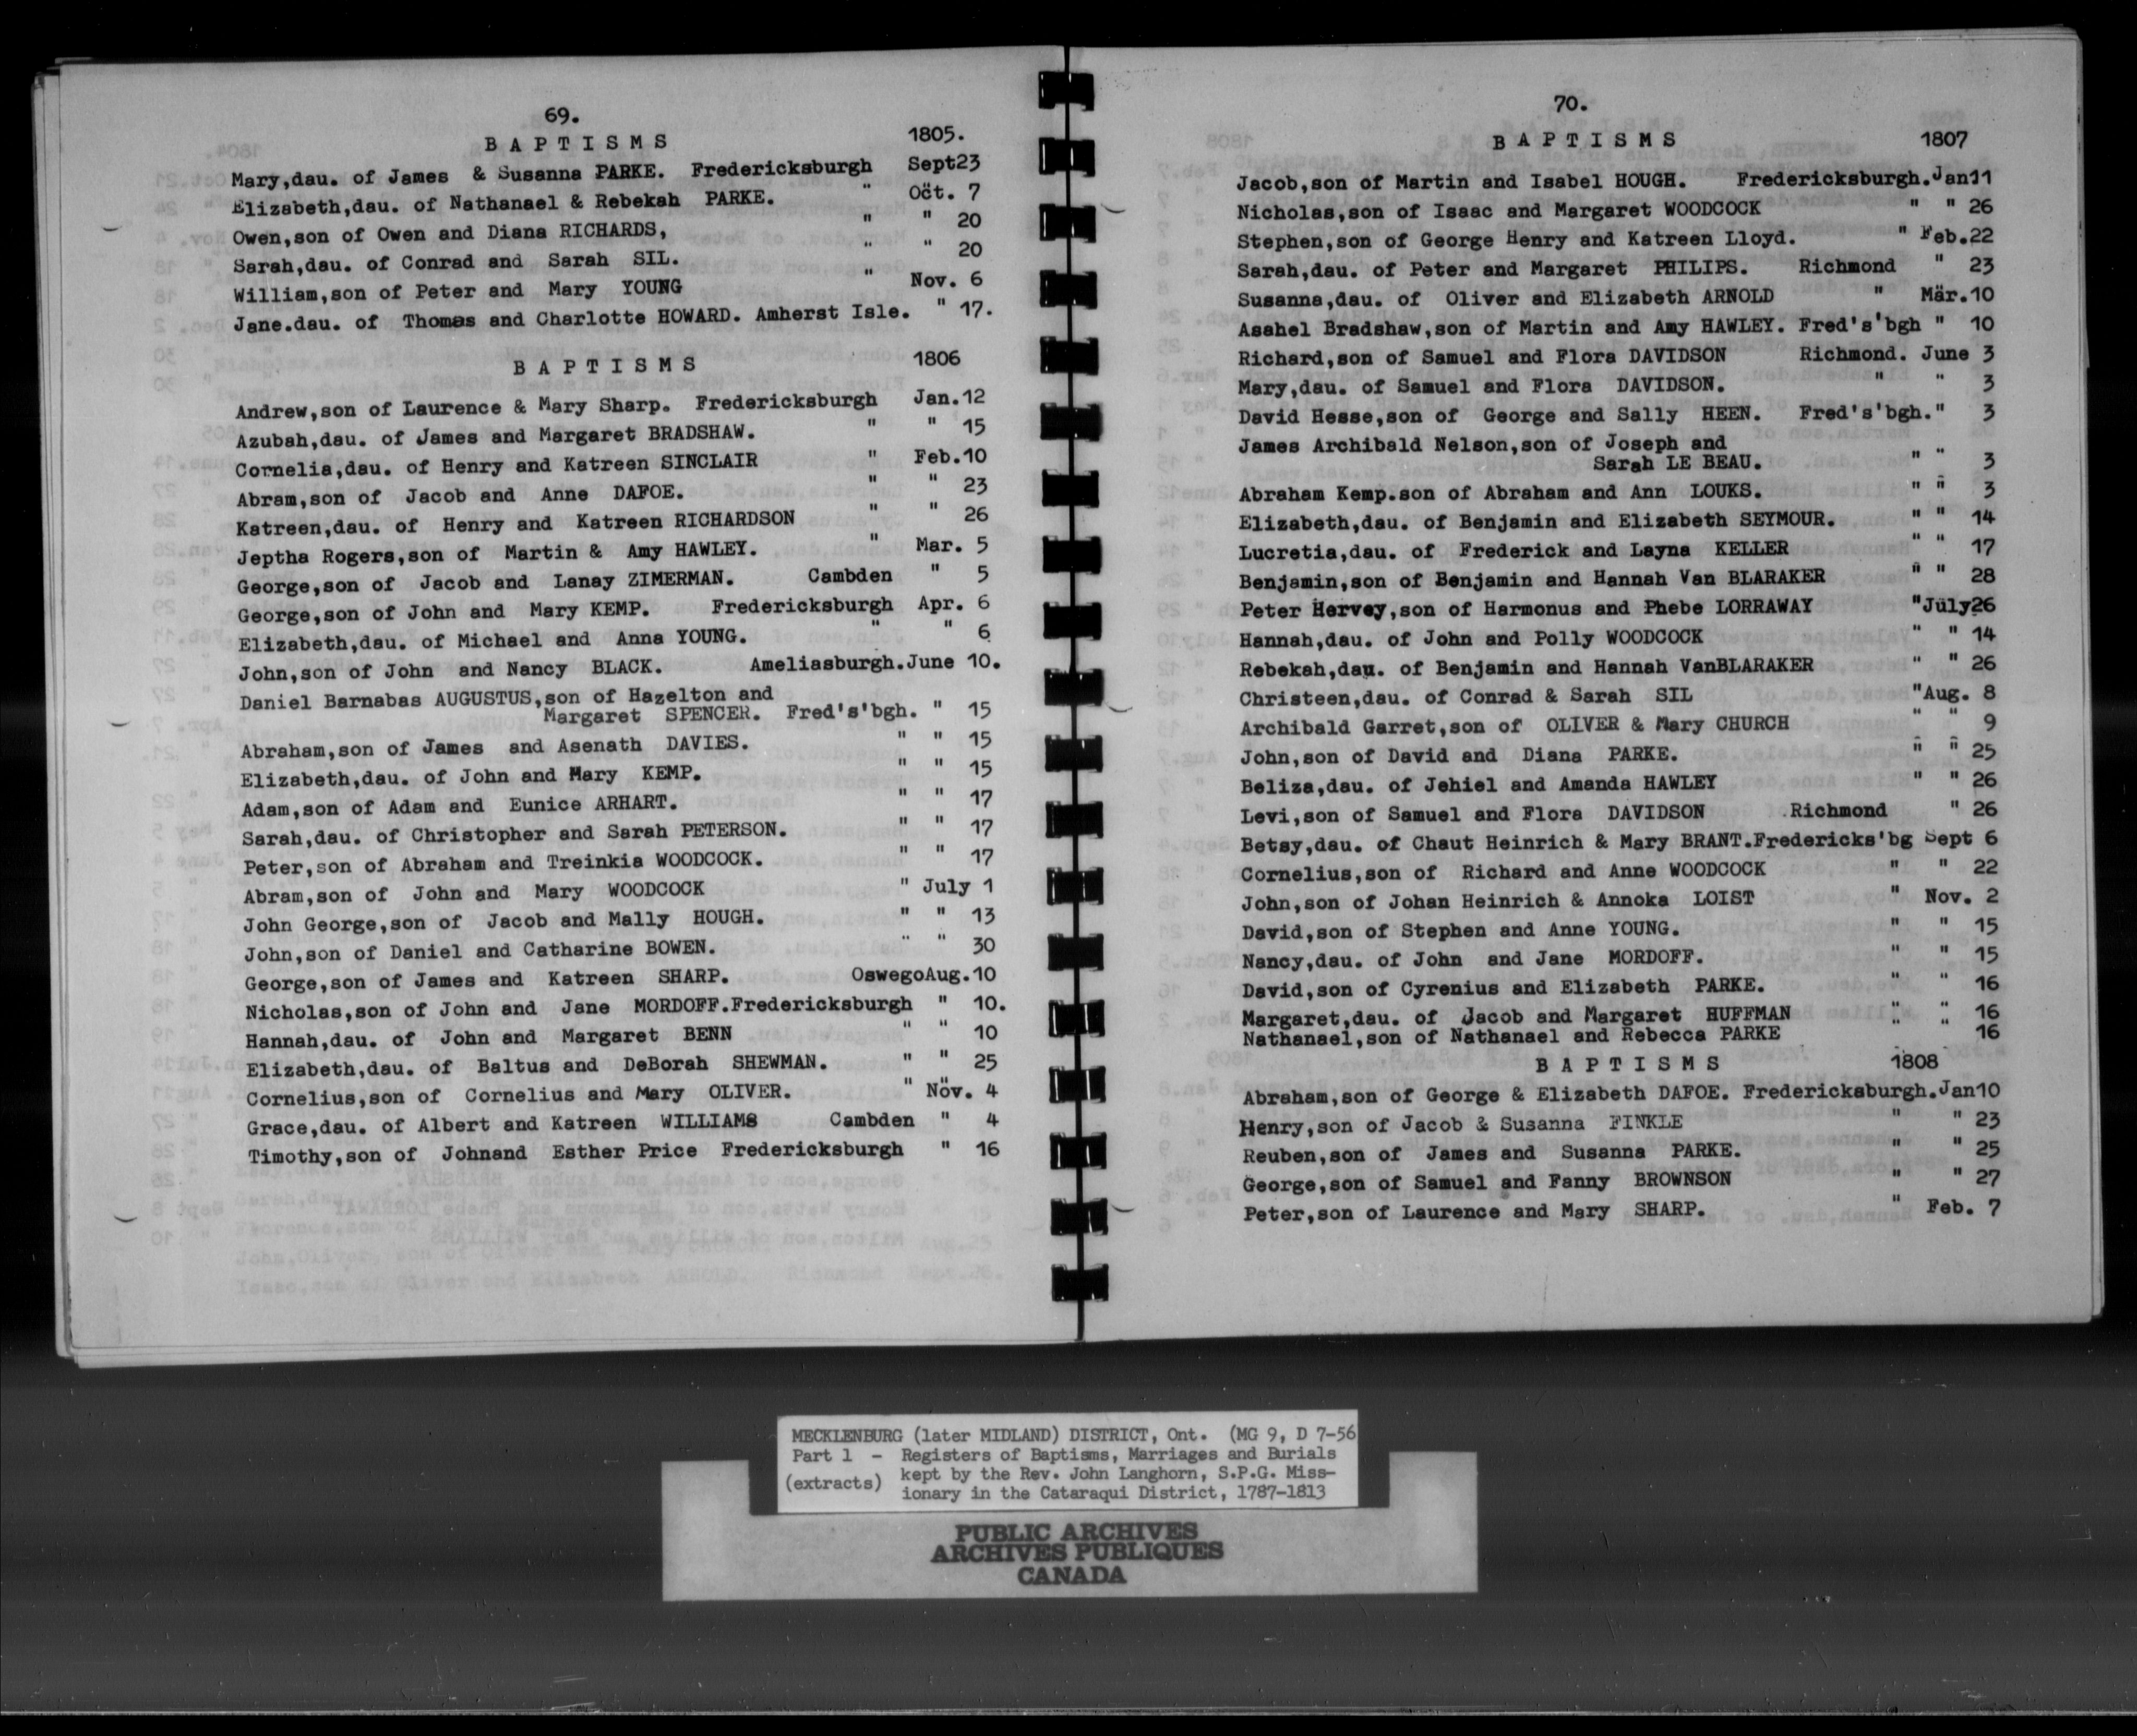 69.
B A P T I S M S 1805.
Mary,dau. of James & Susanna PARKE. Fredericksburgh Sept23
Elizabeth,dau. of Nathanael & Rebekah PARKE. " Oct. 7
Owen,son of Owen and Diana RICHARDS, " " 20
Sarah,dau. of Conrad and Sarah SIL. " " 20
William,son of Peter and Mary YOUNG " Nov. 6
Jane.dau. of Thomas and Charlotte HOWARD. Amherst Isle. " 17.
B A P T I S M S 1806
Andrew,son of Laurence & Mary Sharp. Fredericksburgh Jan.12
Azubah,dau. of James and Margaret BRADSHAW. " " 15
Cornelia,dau. of Henry and Katreen SINCLAIR " Feb.10
Abram,son of Jacob and Anne DAFOE. " " 23
Katreen,dau. of Henry and Katreen RICHARDSON " " 26
Jeptha Rogers,son of Martin & Amy HAWLEY. " Mar. 5
George,son of Jacob and Lanay ZIMERMAN. Cambden " 5
George,son of John and Mary KEMP. Fredericksburgh Apr. 6
Elizabeth,dau. of Michael and Anna YOUNG. " " 6
John,son of John and Nancy BLACK. Ameliasburgh.June 10.
Daniel Barnabas AUGUSTUS,son of Hazelton and
Margaret SPENCER. Fred's'bgh. " 15
Abraham,son of James and Asenath DAVIES. " " 15
Elizabeth,dau. of John and Mary KEMP. " " 15
Adam,son of Adam and Eunice ARHART. " " 17
Sarah,dau. of Christopher and Sarah PETERSON. " " 17
Peter,son of Abraham and Treinkia WOODCOCK. " " 17
Abram,son of John and Mary WOODCOCK " July 1
John George,son of Jacob and Mally HOUGH. " " 13
John,son of Daniel and Catharine BOWEN. " " 30
George,son of James and Katreen SHARP. OswegoAug.10
Nicholas,son of John and Jane MORDOFF.Fredericksburgh " 10.
Hannah,dau. of John and Margaret BENN " " 10
Elizabeth,dau. of Baltus and DeBorah SHEWMAN. " " 25
Cornelius,son of Cornelius and Mary OLIVER. " Nov. 4
Grace,dau. of Albert and Katreen WILLIAMS Cambden " 4
Timothy,son of Johnand Esther Price Fredericksburgh " 16
70.
B A P T I S M S 1807
Jacob,son of Martin and Isabel HOUGH. Fredericksburgh.Jan11
Nicholas,son of Isaac and Margaret WOODCOCK " " 26
Stephen,son of George Henry and Katreen Lloyd. " Feb.22
Sarah,dau. of Peter and Margaret PHILIPS. Richmond " 23
Susanna,dau. of Oliver and Elizabeth ARNOLD " Mar.10
Asahel Bradshaw,son of Martin and Amy HAWLEY. Fred's'bgh " 10
Richard,son of Samuel and Flora DAVIDSON Richmond. June 3
Mary,dau. of Samuel and Flora DAVIDSON. " " 3
David Hesse,son of George and Sally HEEN. Fred's'bgh." 3
James Archibald Nelson,son of Joseph and
Sarah LE BEAU. " " 3
Abraham Kemp.son of Abraham and Ann LOUKS. " " 3
Elizabeth,dau. of Benjamin and Elizabeth SEYMOUR. " " 14
Lucretia,dau. of Frederick and Layna KELLER " " 17
Benjamin,son of Benjamin and Hannah Van BLARAKER " " 28
Peter Hervey,son of Harmonus and Phebe LORRAWAY "July26
Hannah,dau. of John and Polly WOODCOCK " " 14
Rebekah,dau. of Benjamin and Hannah VanBLARAKER " " 26
Christeen,dau. of Conrad & Sarah SIL "Aug. 8
Archibald Garret,son of OLIVER & Mary CHURCH " " 9
John,son of David and Diana PARKE. " " 25
Beliza,dau. of Jehiel and Amanda HAWLEY " " 26
Levi,son of Samuel and Flora DAVIDSON Richmond " 26
Betsy,dau. of Chaut Heinrich & Mary BRANT.Fredericks'bg Sept 6
Cornelius,son of Richard and Anne WOODCOCK " " 22
John,son of Johan Heinrich & Annoka LOIST " Nov. 2
David,son of Stephen and Anne YOUNG. " " 15
Nancy,dau. of John and Jane MORDOFF. " " 15
David,son of Cyrenius and Elizabeth PARKE. " " 16
Margaret,dau. of Jacob and Margaret HUFFMAN " " 16
Nathanael,son of Nathanael and Rebecca PARKE " " 16
B A P T I S M S 1808
Abraham,son of George & Elizabeth DAFOE. Fredericksburgh.Jan10
Henry,son of Jacob & Susanna FINKLE " " 23
Reuben,son of James and Susanna PARKE. " " 25
George,son of Samuel and Fanny BROWNSON " " 27
Peter,son of Laurence and Mary SHARP. " Feb. 7
MECKLENBURG (later MIDLAND) DISTRICT, Ont. (MG 9, D 7-56
Part 1 - Registers of Baptisms, Marriages and Burials
(extracts) kept by the Rev. John Langhorn, S.P.G. Miss-
ionary in the Cataraqui District, 1787-1813
PUBLIC ARCHIVES
ARCHIVES PUBLIQUES
CANADA